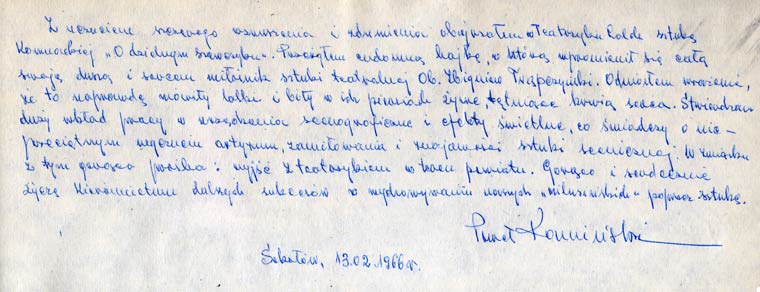 Z uczuciem szczerego wzruszenia i zdumienia obejrzałem w Teatrzyku Lalek sztukę
"O dzielnym szewczyku". Przeżyłem cudowną bajkę, w którą wpromienił się całą
swoją duszą i sercem miłośnik sztuki teatralnej Ob. Zbigniew Odniosłem wrażenie,
że to naprawdę mówiły lalki i biły w ich piersiach żywe, tętniące krwią serca. Stwierdzam
duży wkład pracy w urządzenia scenograficzne i efekty świetlne, co świadczy o nie-
przeciętnym uczuciu artyzmu, zamiłowania i znajomości sztuki scenicznej. W związku
z tym gorąca prośba: wyjść z teatrzykiem w teren powiatu. Gorąco i serdecznie
życzę Kierownictwu dalszych sukcesów w wychowywaniu naszych "milusińskich" poprzez sztukę.
Sokołów, 13.02.1966 r.